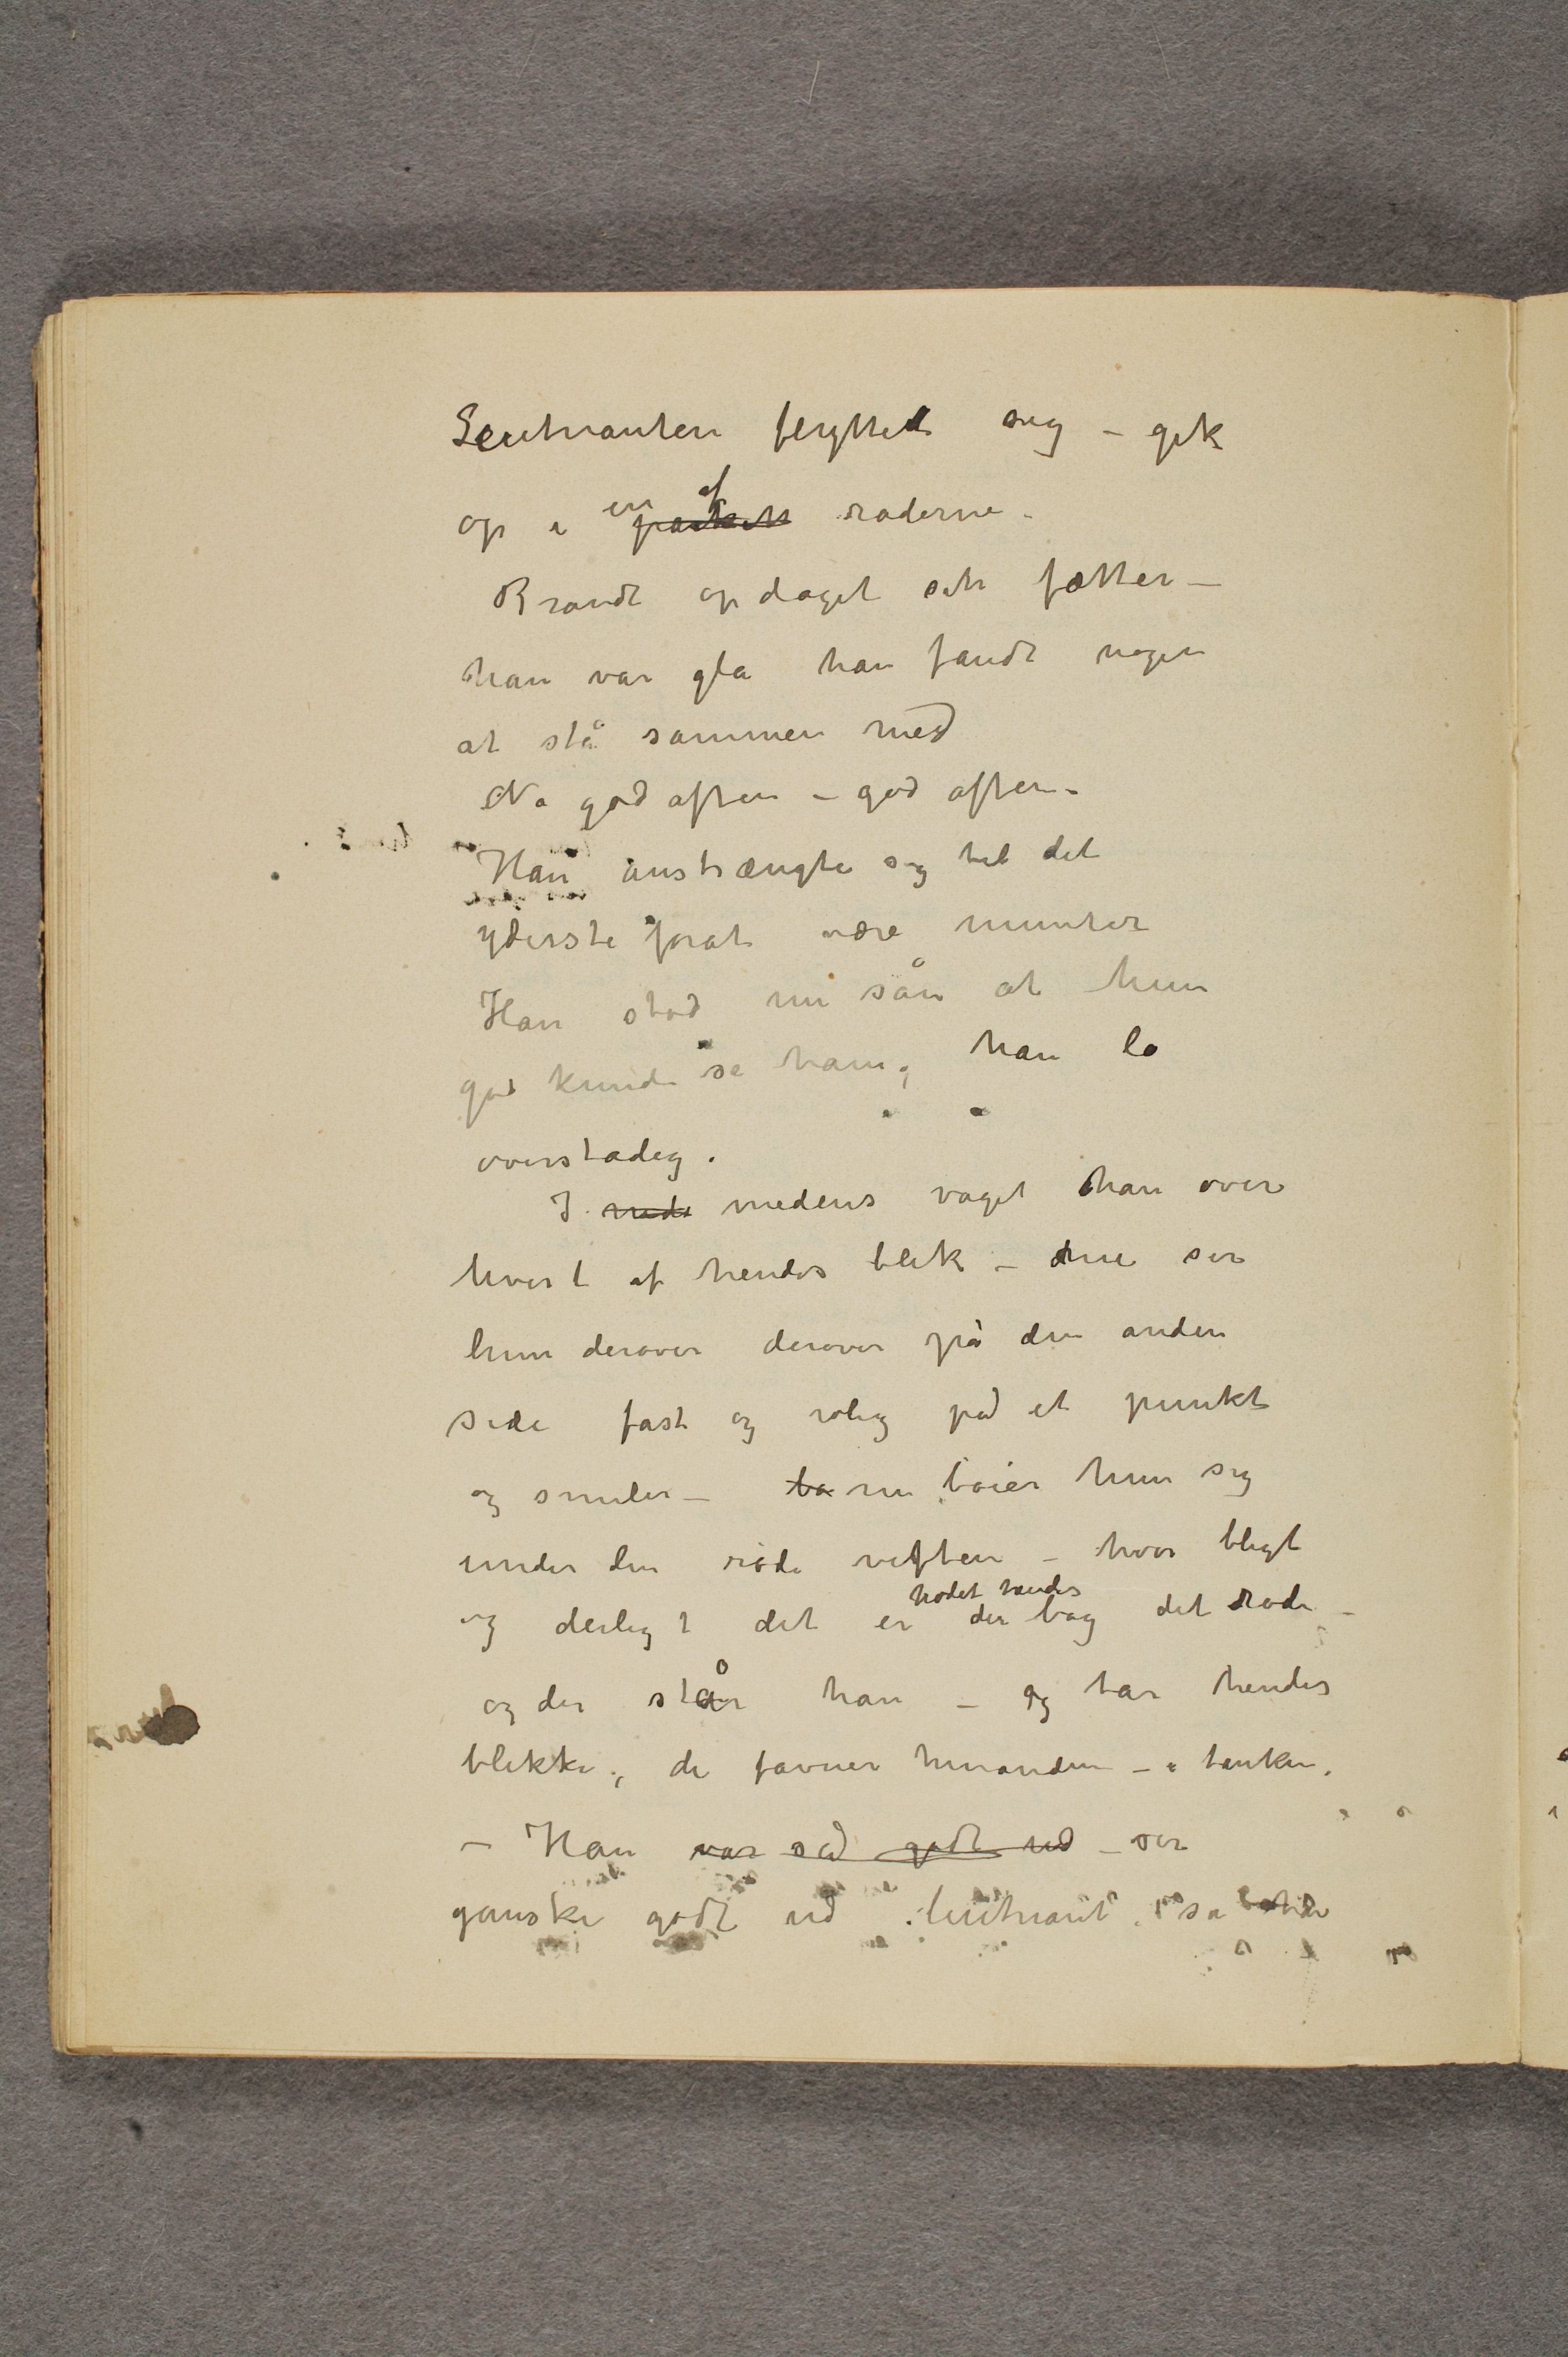 Leutnanten flyttet sig – gik
op i en af parket raderne.
Brandt opdaget sin fætter –
han var gla han fandt nogen
at stå sammen med
Na god aften – god aften –
Han anstrængte sig til det
yderste forat være munter
Han stod nu sån at hun
god kunde se ham, han lo
overstadig.
I mede medens vaget han over
hvert af hendes blik – nu ser
hun derover derover på den anden
side fast og rolig på et punkt
og smiler – bø nu bøier hun sig
under den røde viften – hvor bligt
og deiligt det er hodet hendes der bag det røde –
og der står han – og tar hendes
blikke, de favner hinanden – i tanken.
– Han var så godt ud – ser
ganske godt ud leutnant sa